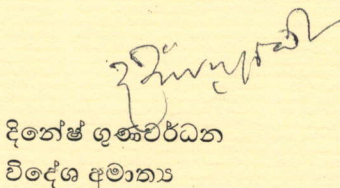 දිනේෂ් ගුණවර්ධන
විදේශ අමාත්‍ය